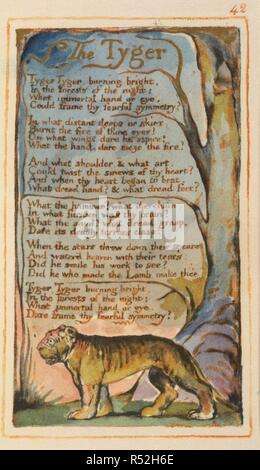 42
The Tyger
Tyger Tyger, burning bright,
In the forests of the night:
What immortal hand or eye,
Could frame thy fearful symmetry?
In what distant deeps or skies
Burnt the fire of thine eyes?
On what wings dare he aspire?
What the hand, dare sieze the fire?
And what shoulder, & what art,
Could twist the sinews of thy heart?
And when thy heart began to beat,
What dread hand? & what dread feet?
What the hammer? what the chain,
In what furnace was thy brain?
What the anvil? what dread grasp,
Dare its deadly terrors clasp?
When the stars threw down their spears
And water'd heaven with their tears:
Did he smile his work to see?
Did he who made the Lamb make thee?
Tyger Tyger burning bright,
In the forests of the night:
What immortal hand or eye,
Dare frame thy fearful symmetry?
alamy
www.alamy.com - R52H6E